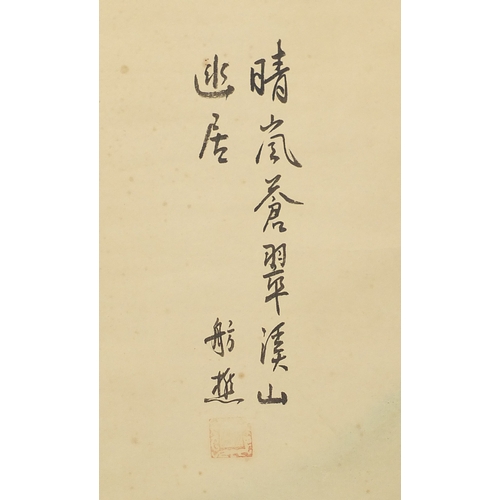 晴嵐蒼翠溪山
幽居
舫樵